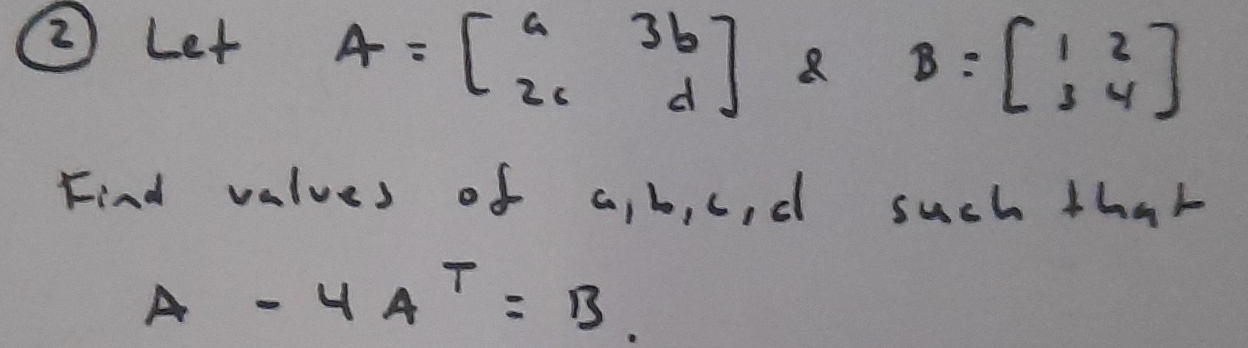 ② Let A = [ a 3b ; 2c d ] & B = [ 1 2 ; 3 4 ]
Find values of a, b, c, d such that
A - 4 A^T = B.